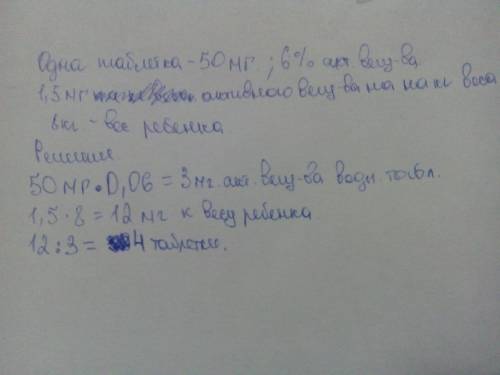 Одна таблетка - 50 мг ; 6% акт. вещ-ва
1,5 мг активного вещ-ва на кг веса
8 кг - вес ребенка
Решение
50 мг • 0,06 = 3 мг. акт. вещ-ва в одн. табл.
1,5 · 8 = 12 мг к весу ребенка
12 : 3 = 4 таблетки.